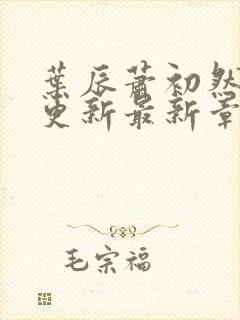 葉辰蕭初然
更新最新章
毛宗福